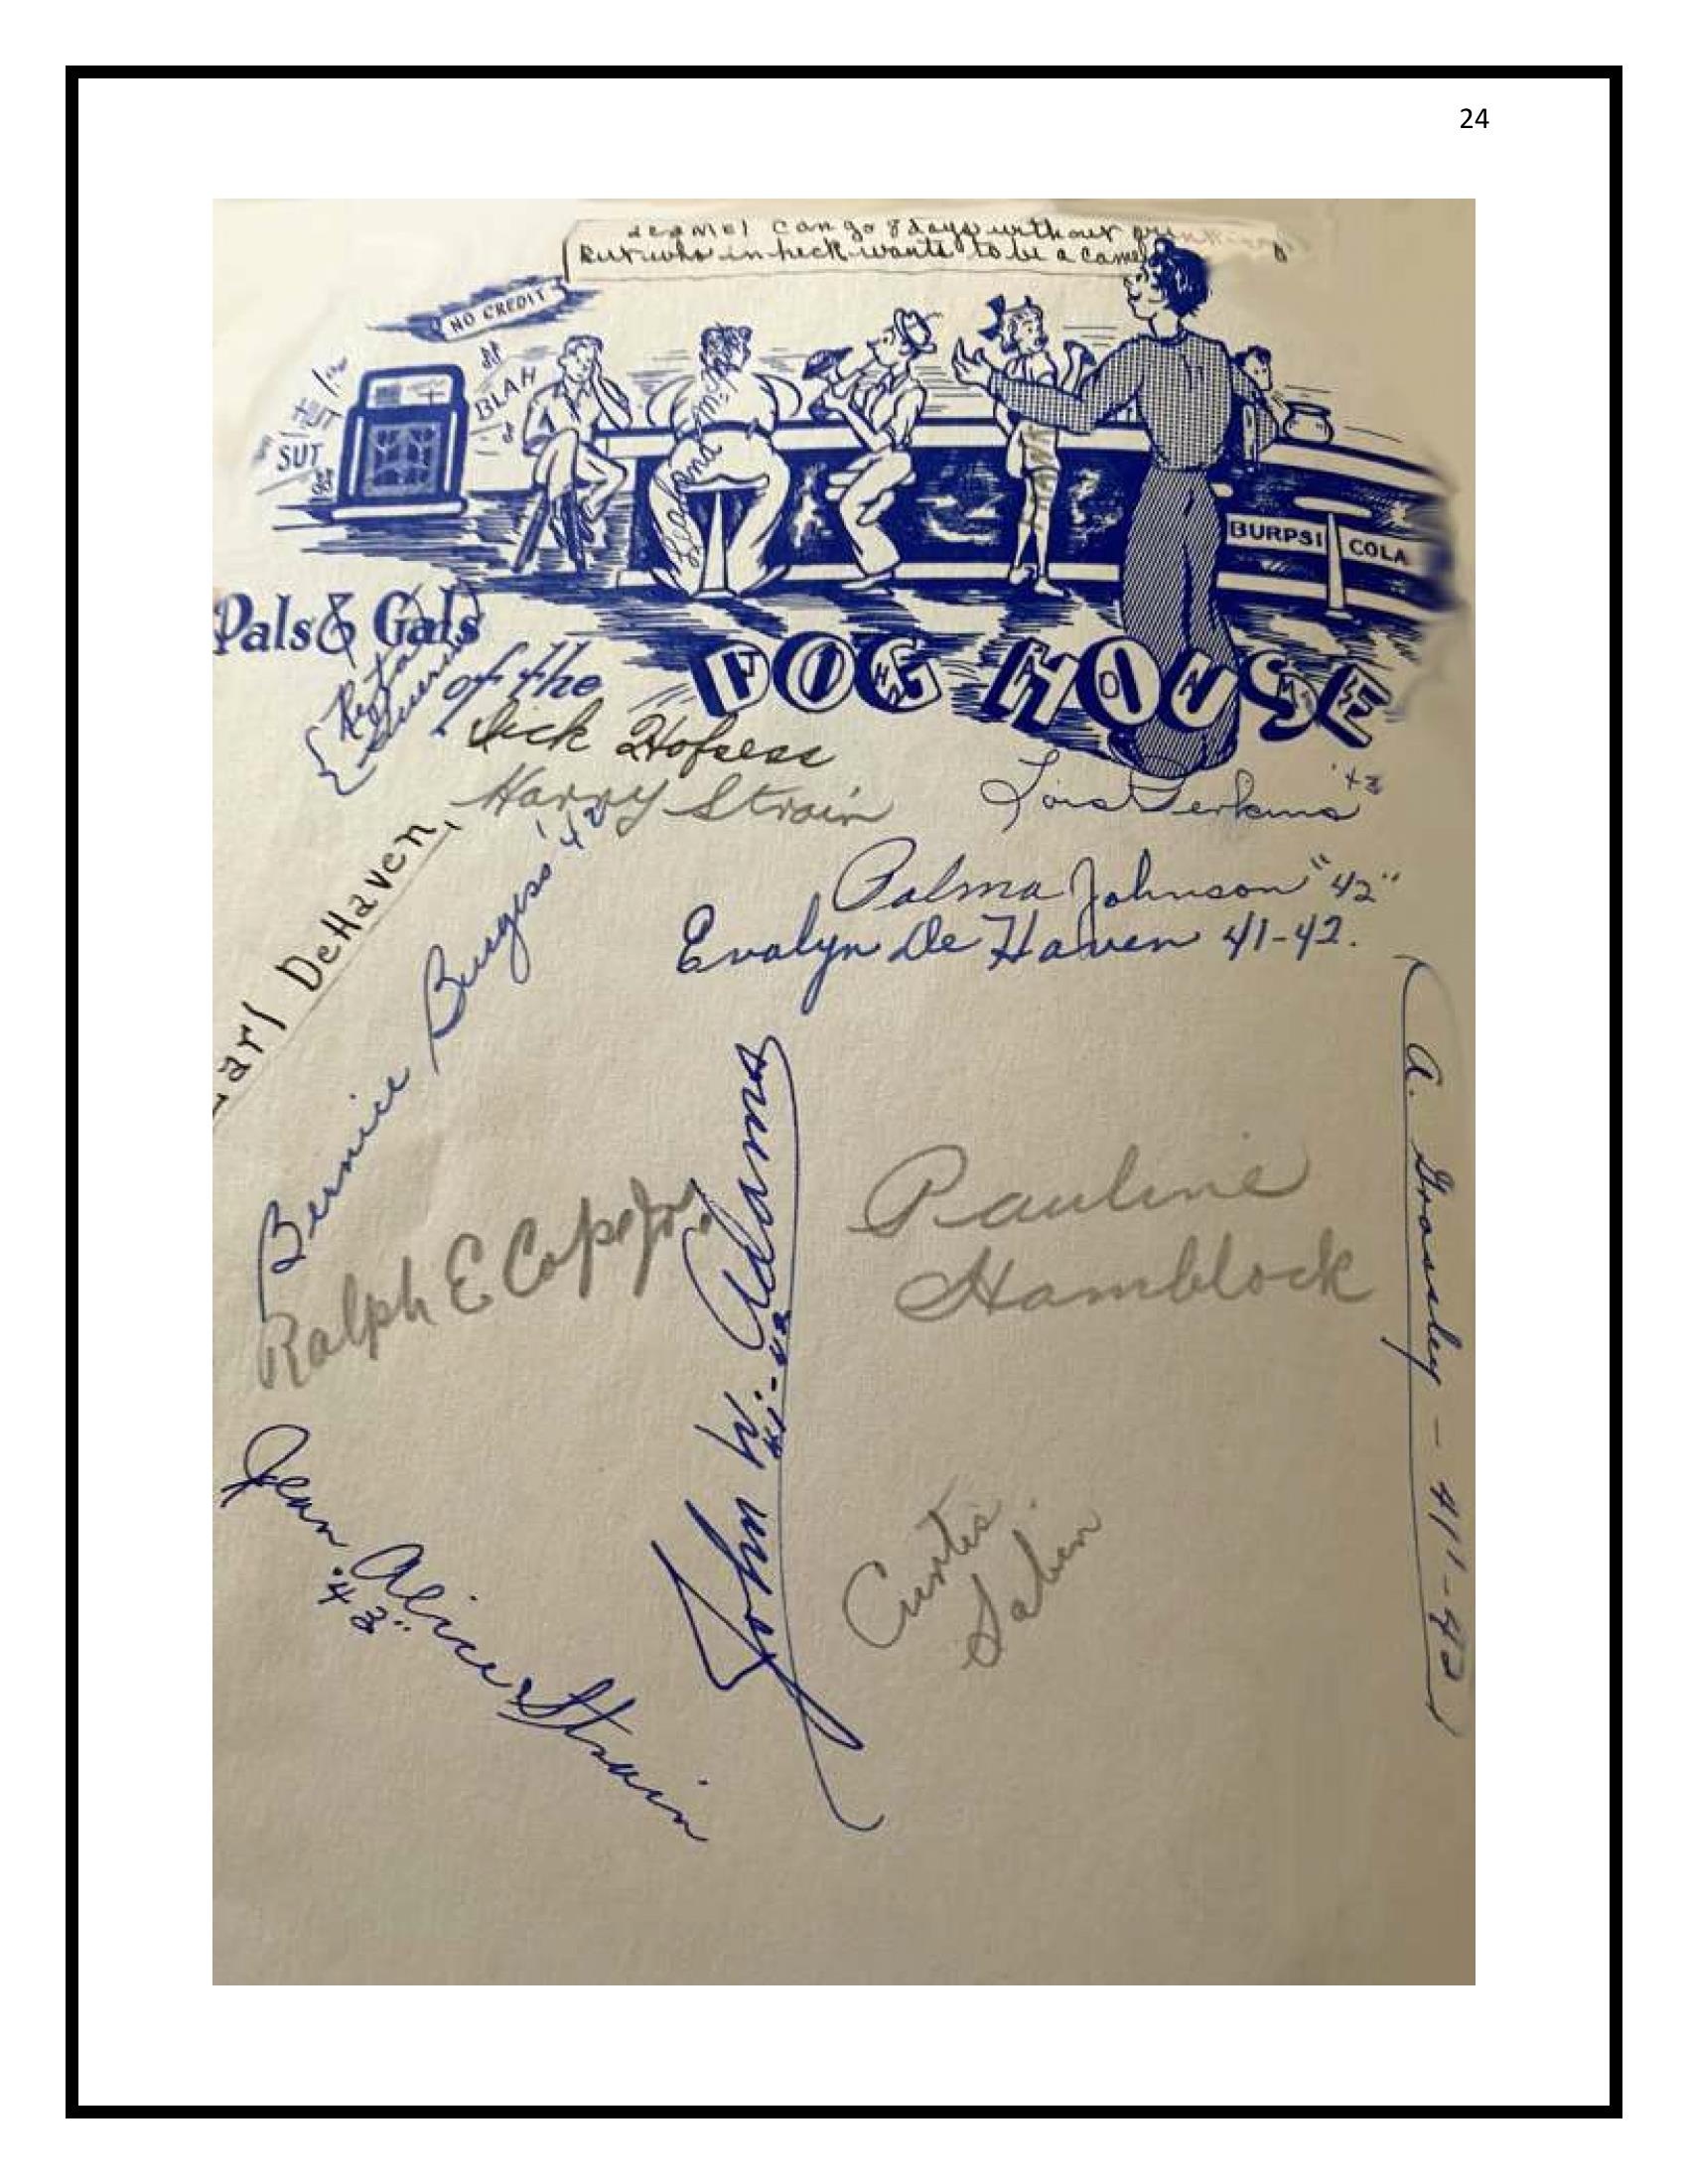 24
a camel can go 8 days without
But who in heck wants to be a camel
NO CREDIT
BLAH
SUT
BURPSI COLA
Pals & Gals
of the
DOG HOUSE
Reta
Dick Hofsess
Harry Strain
Lois Perkins '42
Earl DeHaven,
Bernice Burgess '42
Palma Johnson "42"
Evalyn De Haven 41-42.
Ralph E Cope Jr.
John W. Adams
41-42
Pauline
Hamblock
A. Grossley - 41-42
Jean Alice Strain
"43"
Curtis
Sabin